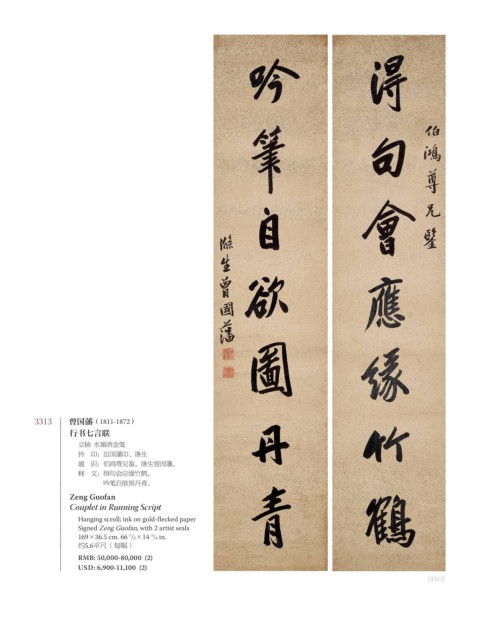 伯鴻尊兄鑒
得句會應緣竹鶴
吟筆自欲圖丹青
滌生曾國藩
3313
曾国藩（1811-1872）
行书七言联
立轴 水墨洒金笺
钤 印：臣国藩印、涤生
题 识：伯鸿尊兄鉴。涤生曾国藩。
释 文：得句会应缘竹鹤，
吟笔自欲图丹青。
Zeng Guofan
Couplet in Running Script
Hanging scroll; ink on gold-flecked paper
Signed Zeng Guofan, with 2 artist seals
169 × 36.5 cm. 66 1/2 × 14 3/8 in.
约5.6平尺（每幅）
RMB: 50,000-80,000 (2)
USD: 6,900-11,100 (2)
(3313)